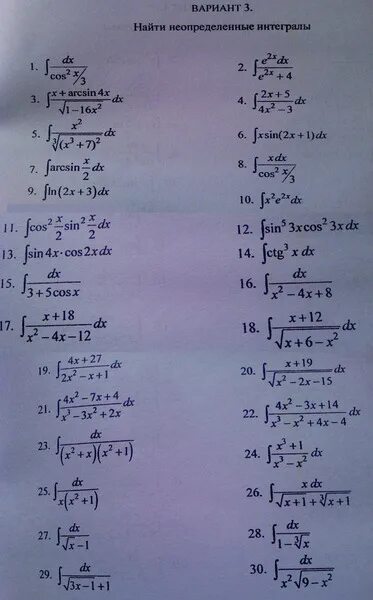 ВАРИАНТ 3.
Найти неопределенные интегралы
1. ∫ dx / cos² x/3
2. ∫ e^{2x}dx / (e^{2x} + 4)
3. ∫ (x + arcsin 4x) / √(1−16x²) dx
4. ∫ (2x + 5) / (4x² − 3) dx
5. ∫ x² / ∛((x³ + 7)²) dx
6. ∫ x sin(2x + 1)dx
7. ∫ arcsin x/2 dx
8. ∫ xdx / cos² x/3
9. ∫ ln(2x + 3)dx
10. ∫ x²e^{2x}dx
11. ∫ cos² x/2 sin² x/2 dx
12. ∫ sin⁵ 3x cos² 3x dx
13. ∫ sin 4x · cos 2x dx
14. ∫ ctg³ x dx
15. ∫ dx / (3 + 5cos x)
16. ∫ dx / (x² − 4x + 8)
17. ∫ (x + 18) / (x² − 4x − 12) dx
18. ∫ (x + 12) / √(x + 6 − x²) dx
19. ∫ (4x + 27) / (2x² − x + 1) dx
20. ∫ (x + 19) / √(x² − 2x − 15) dx
21. ∫ (4x² − 7x + 4) / (x³ − 3x² + 2x) dx
22. ∫ (4x² − 3x + 14) / (x³ − x² + 4x − 4) dx
23. ∫ dx / (x² + x)(x² + 1)
24. ∫ (x³ + 1) / (x³ − x²) dx
25. ∫ dx / x(x² + 1)
26. ∫ x dx / (√(x + 1) + ∛(x + 1))
27. ∫ dx / (√x − 1)
28. ∫ dx / (1 − ∛x)
29. ∫ dx / (√(3x − 1) + 1)
30. ∫ dx / x²√(9 − x²)